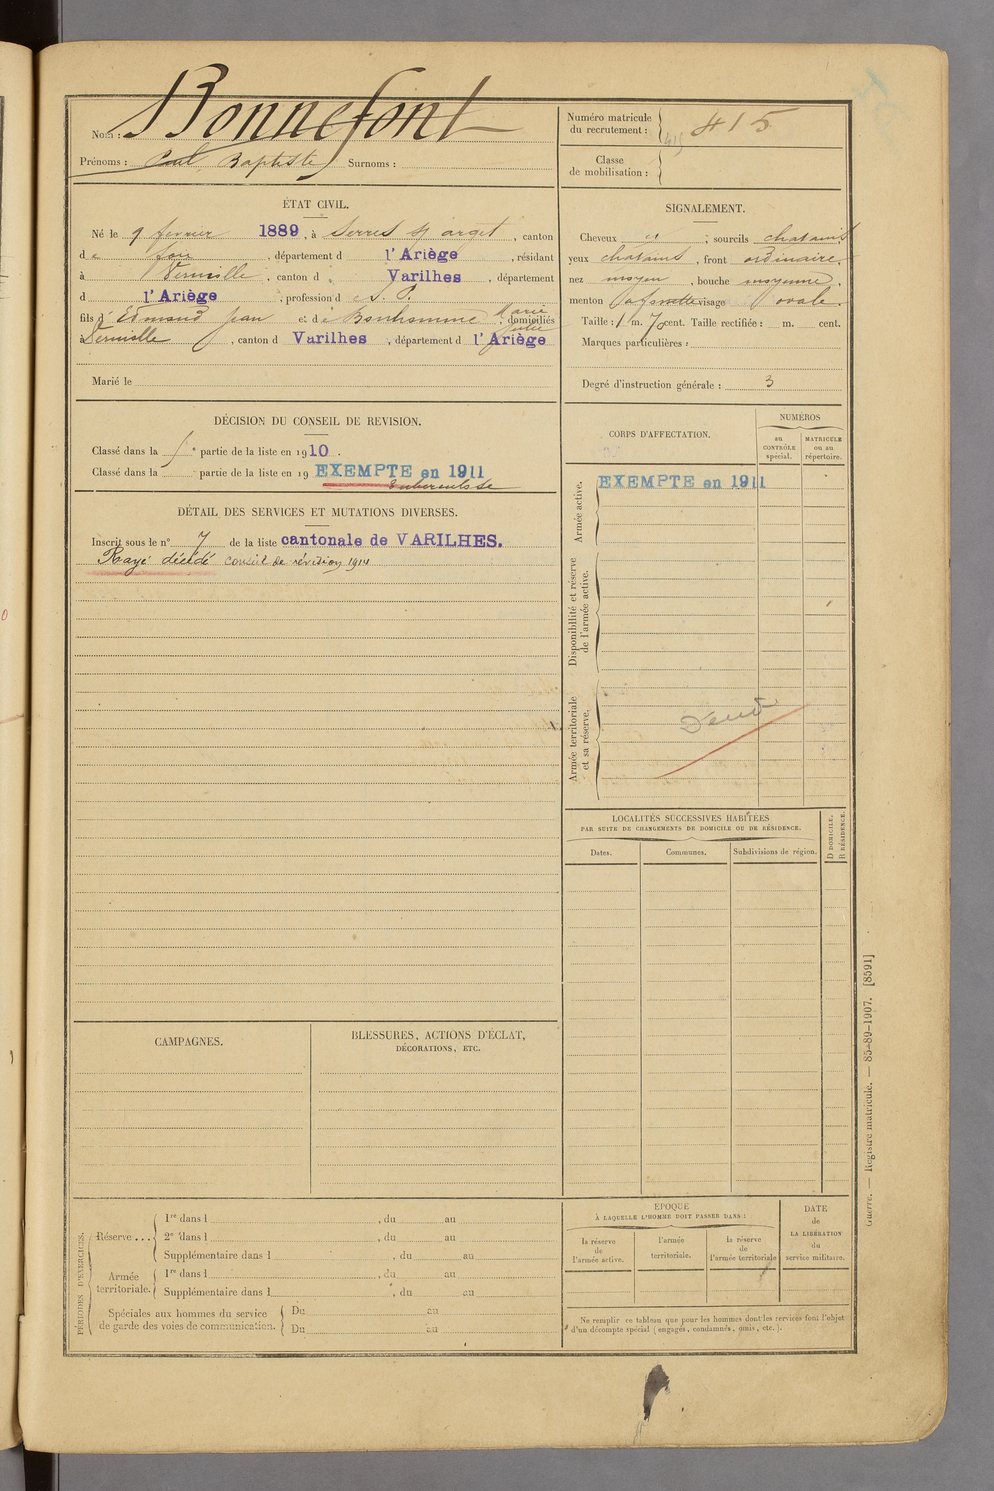 Nom : Bonnefont
Prénoms : Paul, Baptiste Surnoms :
Numéro matricule du recrutement : 415
415
Classe de mobilisation :
ÉTAT CIVIL.
Né le 9 février 1889, à Serres s/ arget, canton
de foix, département d l'Ariège, résidant
à Verniolle, canton d Varilhes, département
d l'Ariège, profession d e S. P.
fils d' Edmond Jean et de Bonhomme Marie Julie, domiciliés
à Verniolle, canton d Varilhes, département d l'Ariège
Marié le
SIGNALEMENT.
Cheveux " ; sourcils chatains
yeux chatains, front ordinaire,
nez moyen, bouche moyenne,
menton à fossette visage ovale.
Taille : 1 m. 70 cent. Taille rectifiée : m. cent.
Marques particulières :
Degré d'instruction générale : 3
DÉCISION DU CONSEIL DE REVISION.
Classé dans la 5e partie de la liste en 1910.
Classé dans la partie de la liste en 19 EXEMPTE en 1911
tuberculose
DÉTAIL DES SERVICES ET MUTATIONS DIVERSES.
Inscrit sous le n° 7 de la liste cantonale de VARILHES.
Rayé décédé conseil de révision 1914
CORPS D'AFFECTATION.
NUMÉROS
au CONTRÔLE spécial.
MATRICULE ou au répertoire.
Armée active.
EXEMPTE en 1911
Disponibilité et réserve de l'armée active.
Armée territoriale et sa réserve.
LOCALITÉS SUCCESSIVES HABITÉES
PAR SUITE DE CHANGEMENTS DE DOMICILE OU DE RÉSIDENCE.
Dates.
Communes.
Subdivisions de région.
D DOMICILE.
R RÉSIDENCE.
CAMPAGNES.
BLESSURES, ACTIONS D'ÉCLAT,
DÉCORATIONS, ETC.
PÉRIODES D'EXERCICES.
Réserve ...
1re dans l , du au
2e dans l , du au
Supplémentaire dans l , du au
Armée territoriale.
1re dans l , du au
Supplémentaire dans l , du au
Spéciales aux hommes du service de garde des voies de communication.
Du au
Du au
ÉPOQUE
À LAQUELLE L'HOMME DOIT PASSER DANS :
la réserve de l'armée active.
l'armée territoriale.
la réserve de l'armée territoriale
DATE de LA LIBÉRATION du service militaire.
Ne remplir ce tableau que pour les hommes dont les services font l'objet
d'un décompte spécial (engagés, condamnés, omis, etc.).
Guerre. — Registre matricule. — 85-89-1907. [8591]